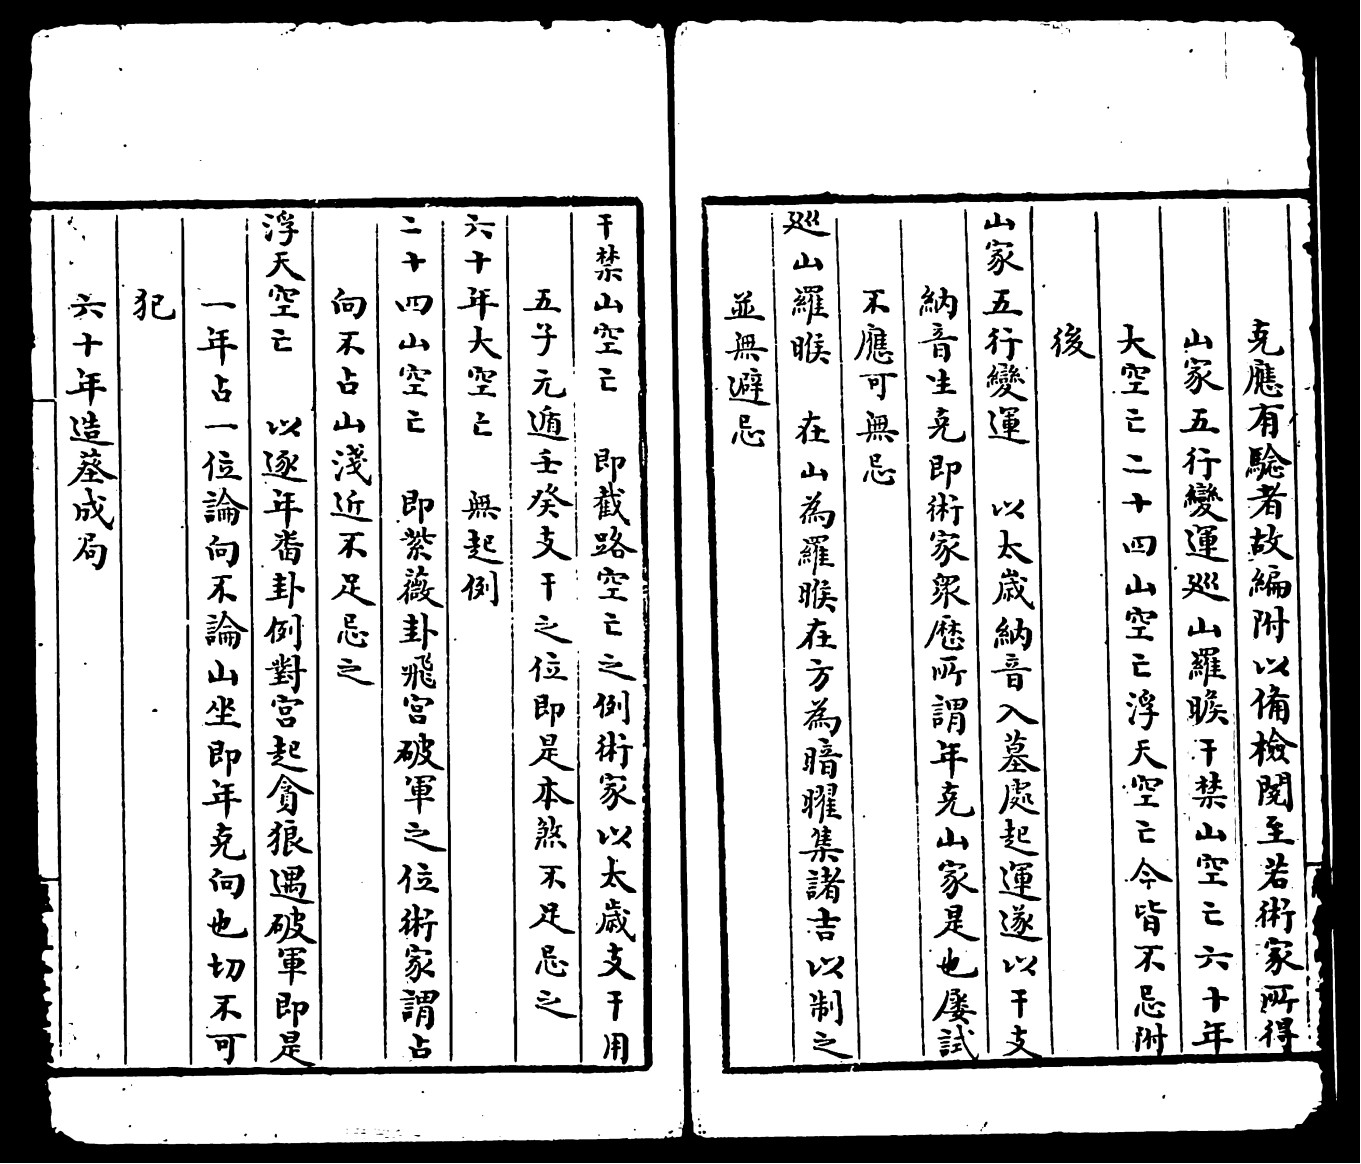 克應有驗者故編附以俻檢閱至若術家所得
山家五行變運廵山羅睺干禁山空亡六十年
大空亡二十四山空亡浮天空亡今皆不忌附
後
山家五行變運　以太歳納音入墓處起運遂以干支
納音生克即術家衆歷所謂年克山家是也屡試
不應可無忌
廵山羅睺　在山為羅睺在方為暗曜集諸吉以制之
並無避忌
干禁山空亡　即截路空亡之例術家以太歳支干用
五子元遁壬癸支干之位即是本煞不足忌之
六十年大空亡　無起例
二十四山空亡　即紫薇卦飛宮破軍之位術家謂占
向不占山淺近不足忌之
浮天空亡　以逐年畨卦例對宮起貪狼遇破軍即是
一年占一位論向不論山坐即年克向也切不可
犯
六十年造葬成局